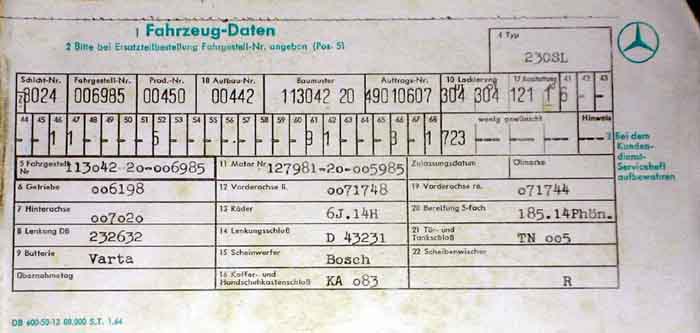 1 Fahrzeug-Daten
2 Bitte bei Ersatzteilbestellung Fahrgestell-Nr. angeben (Pos. 5)
4 Typ
230SL
Schicht-Nr. Fahrgestell-Nr. Prod.-Nr. 18 Aufbau-Nr. Baumuster Auftrags-Nr. 10 Lackierung 17 Ausstattung 41 42 43
8024 006985 00450 00442 113042 20 49010607 304 304 121 1 6 - -
44 45 46 47 48 49 50 51 52 53 54 55 56 57 58 59 60 61 62 63 64 65 66 67 68 wenig gewünscht Hinweis
- - 1 1 - - - 5 - - - - - - - - 9 1 - - 3 - 1 723 - - - - - -
3 Bei dem
Kunden-
dienst-
Serviceheft
aufbewahren
5 Fahrgestell Nr 113042-20-006985 11 Motor Nr 127981-20-005985 Zulassungsdatum Ölmarke
6 Getriebe 006198 12 Vorderachse li. 0071748 19 Vorderachse re. 071744
7 Hinterachse 007020 13 Räder 6J.14H 20 Bereifung 5-fach 185.14Phön.
8 Lenkung DB 232632 14 Lenkungsschloß D 43231 21 Tür- und Tankschloß TN 005
9 Batterie Varta 15 Scheinwerfer Bosch 22 Scheibenwischer
Übernahmetag 16 Koffer- und Handschuhkastenschloß KA 083 R
DB 600-50-12 08.000 S.T. 1.64